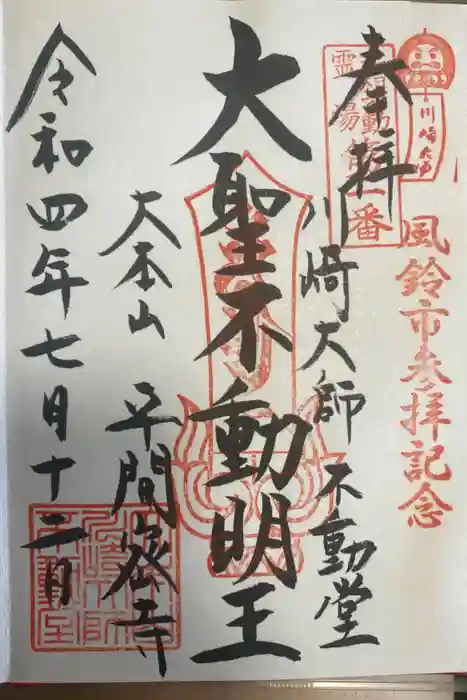 風鈴市参拝記念
川崎大師
奉拝
霊場
一番
川崎大師不動堂
大聖不動明王
大本山 平間密寺
令和四年七月十二日